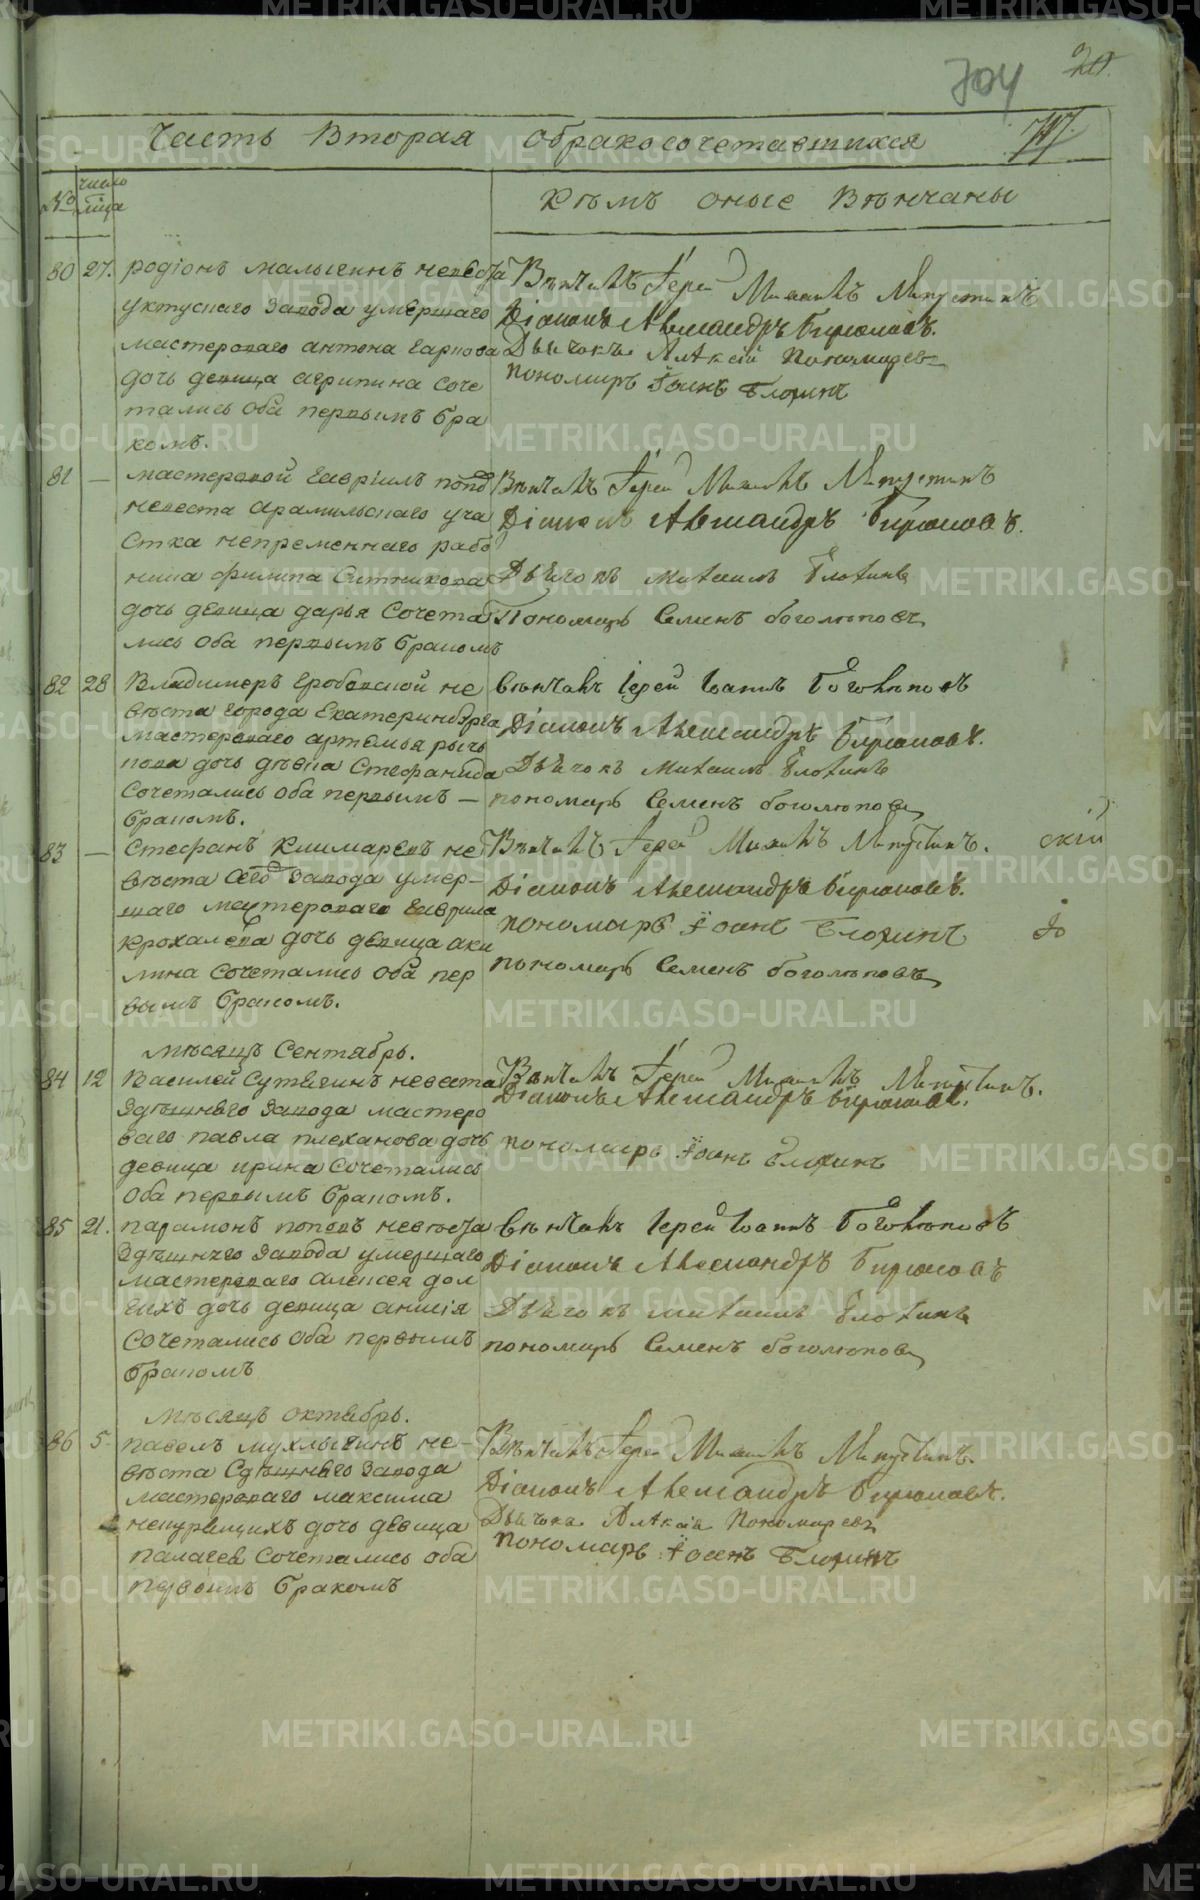 704
20.
Часть Вторая обракосочетавшихся
№ число
кѣмъ оные Вѣнчаны
80 27. родіонъ малыгинъ невѣста
уктускаго Завода умершаго
мастероваго антона Карпова
дочь девица агрипина соче
тались оба первымъ бра
комъ.
Вѣнчалъ Іерей Михаилъ
Діаконъ Александръ Бирюковъ.
Дьячокъ Алѣксій Пономаревъ
пономарь Іоанъ Блохинъ
81 — мастеровой Гавріилъ попов
невеста арамильскаго уча
стка непременнаго рабо
ника филипа Ситникова
дочь девица дарья Сочета
лись оба первымъ бракомъ
Вѣнчалъ Іерей Михаилъ
Діаконъ Александръ Бирюковъ.
Дьячокъ михаилъ Блохинъ
Пономарь Семенъ боголюповъ
82 28 Владимеръ Гробовской не
вѣста города Екатеринбурга
мастероваго артемья рыч
кова дочь дѣвица Стефанида
Сочетались оба первымъ —
бракомъ.
вѣнчалъ Іерей Іоаннъ Боголюповъ
Діаконъ Александръ Бирюковъ.
Дьячокъ михаилъ Блохинъ
пономарь Семенъ боголюповъ
83 — Стефанъ Кишмаревъ не
вѣста сего Завода умер-
шаго мастероваго Гаврила
Крохалева дочь девица аки
лина Сочетались оба пер
вымъ бракомъ.
Вѣнчалъ Іерей Михаилъ
скій
Діаконъ Александръ Бирюковъ.
пономарь Іоанъ Блохинъ
пономарь Семенъ боголюповъ
мѣсяцъ Сентябрь.
84 12 Василей Сутягинъ невеста
Здѣшнего Завода мастеро
ваго павла плеханова дочь
девица ирина Сочетались
оба первымъ бракомъ.
Вѣнчалъ Іерей Михаилъ
Діаконъ Александръ Бирюковъ.
пономарь Іоанъ Блохинъ
85 21. парамонъ поповъ невѣста
Здѣшнего Завода умершаго
мастероваго алексея дол
гихъ дочь девица
Сочетались оба первымъ
бракомъ
вѣнчалъ Іерей Іоаннъ Боголюповъ
Діаконъ Александръ Бирюковъ
Дьячокъ михаилъ Блохинъ
пономарь Семенъ боголюповъ
мѣсяцъ октябрь.
86 5. павелъ мухлыгинъ не-
вѣста Сдѣшнего Завода
мастероваго максима
некурящихъ дочь девица
палагея Сочетались оба
первымъ бракомъ
Вѣнчалъ Іерей Михаилъ
Діаконъ Александръ Бирюковъ.
Дьячокъ Алѣксій Пономаревъ
пономарь Іоанъ Блохинъ
METRIKI.GASO-URAL.RU